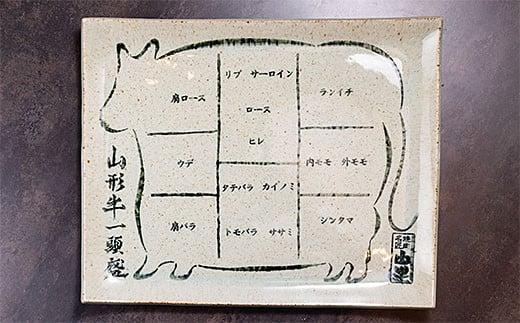 肩ロース
リブ サーロイン
ロース
ヒレ
ランイチ
ウデ
タテバラ カイノミ
内モモ 外モモ
肩バラ
トモバラ ササミ
シンタマ
山形牛一頭盛